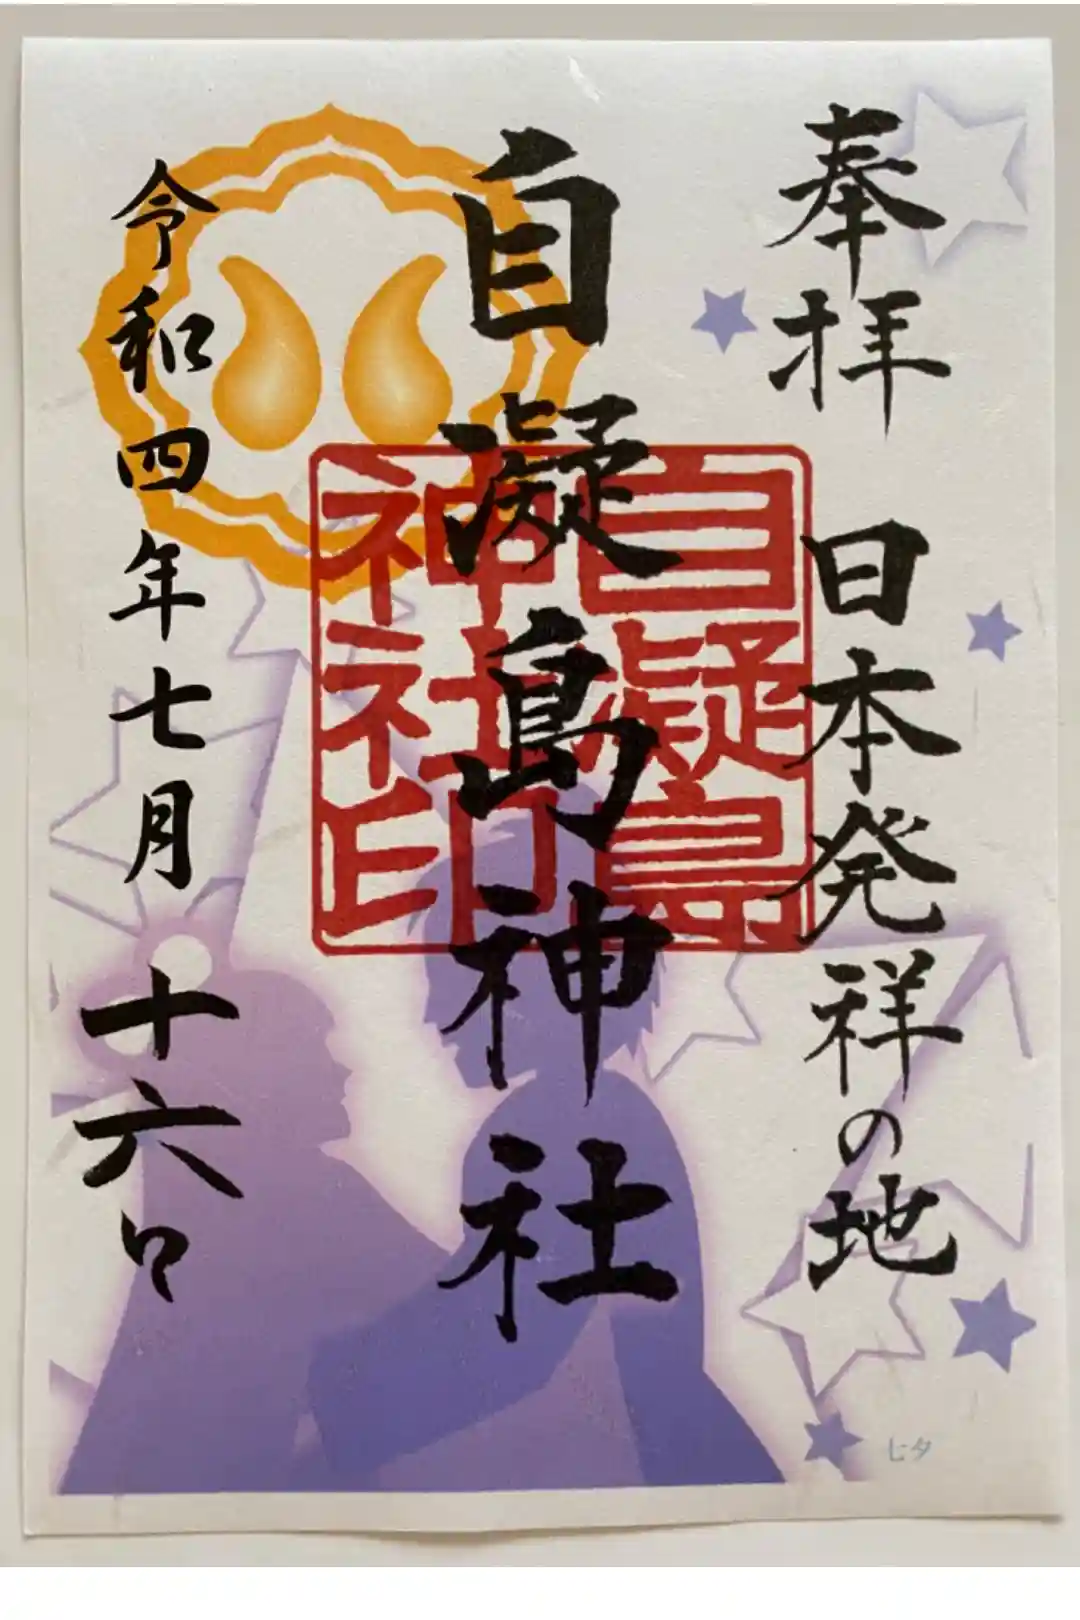 奉拝 日本発祥の地
自凝島神社
自凝島
神社印
令和四年七月十六日
七夕